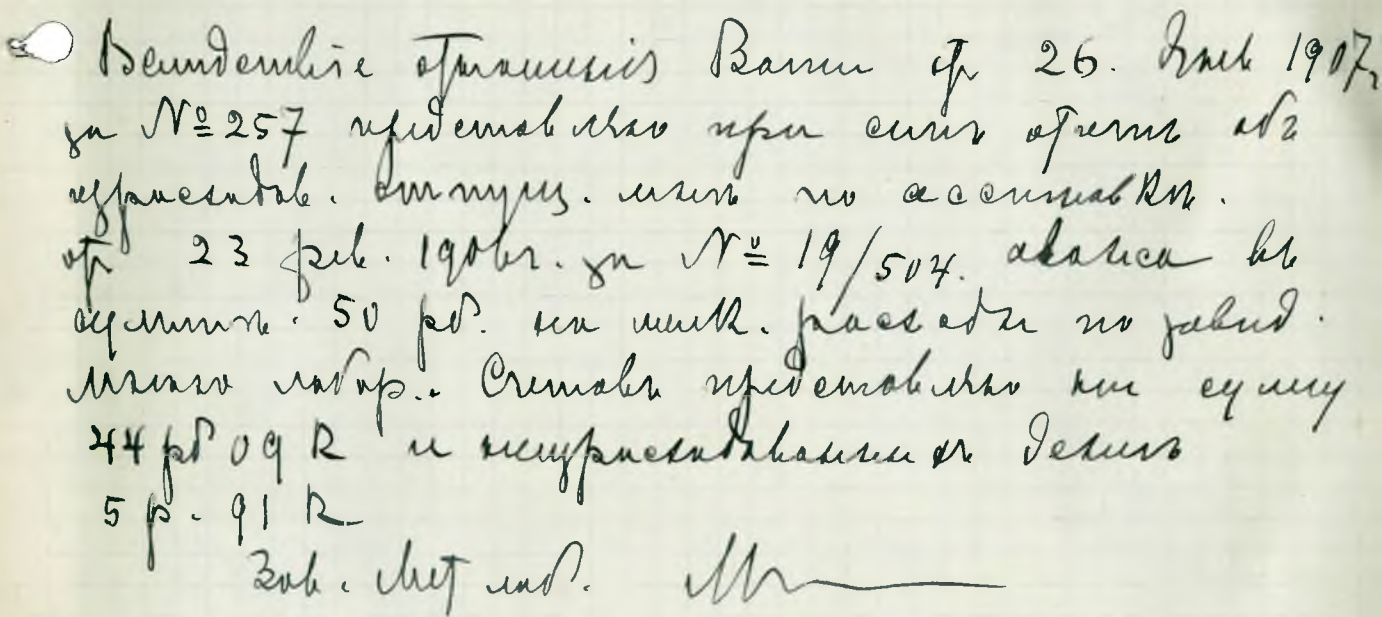 Вслѣдствіе отношенія Вашего от 26. Янв 1907 г.
за № 257 представляю при семъ отчетъ объ
израсходов. отпущ. мнѣ по ассигновкѣ.
от 23 фев. 1906 г. за № 19/504. аванса въ
суммѣ. 50 рб. на мелк. расходы по завѣд.
мною лабор.. Счетовъ представляю на сумму
44 рб 09 к и неизрасходованныхъ денегъ
5 р. 91 к
Зав. Мет лаб.